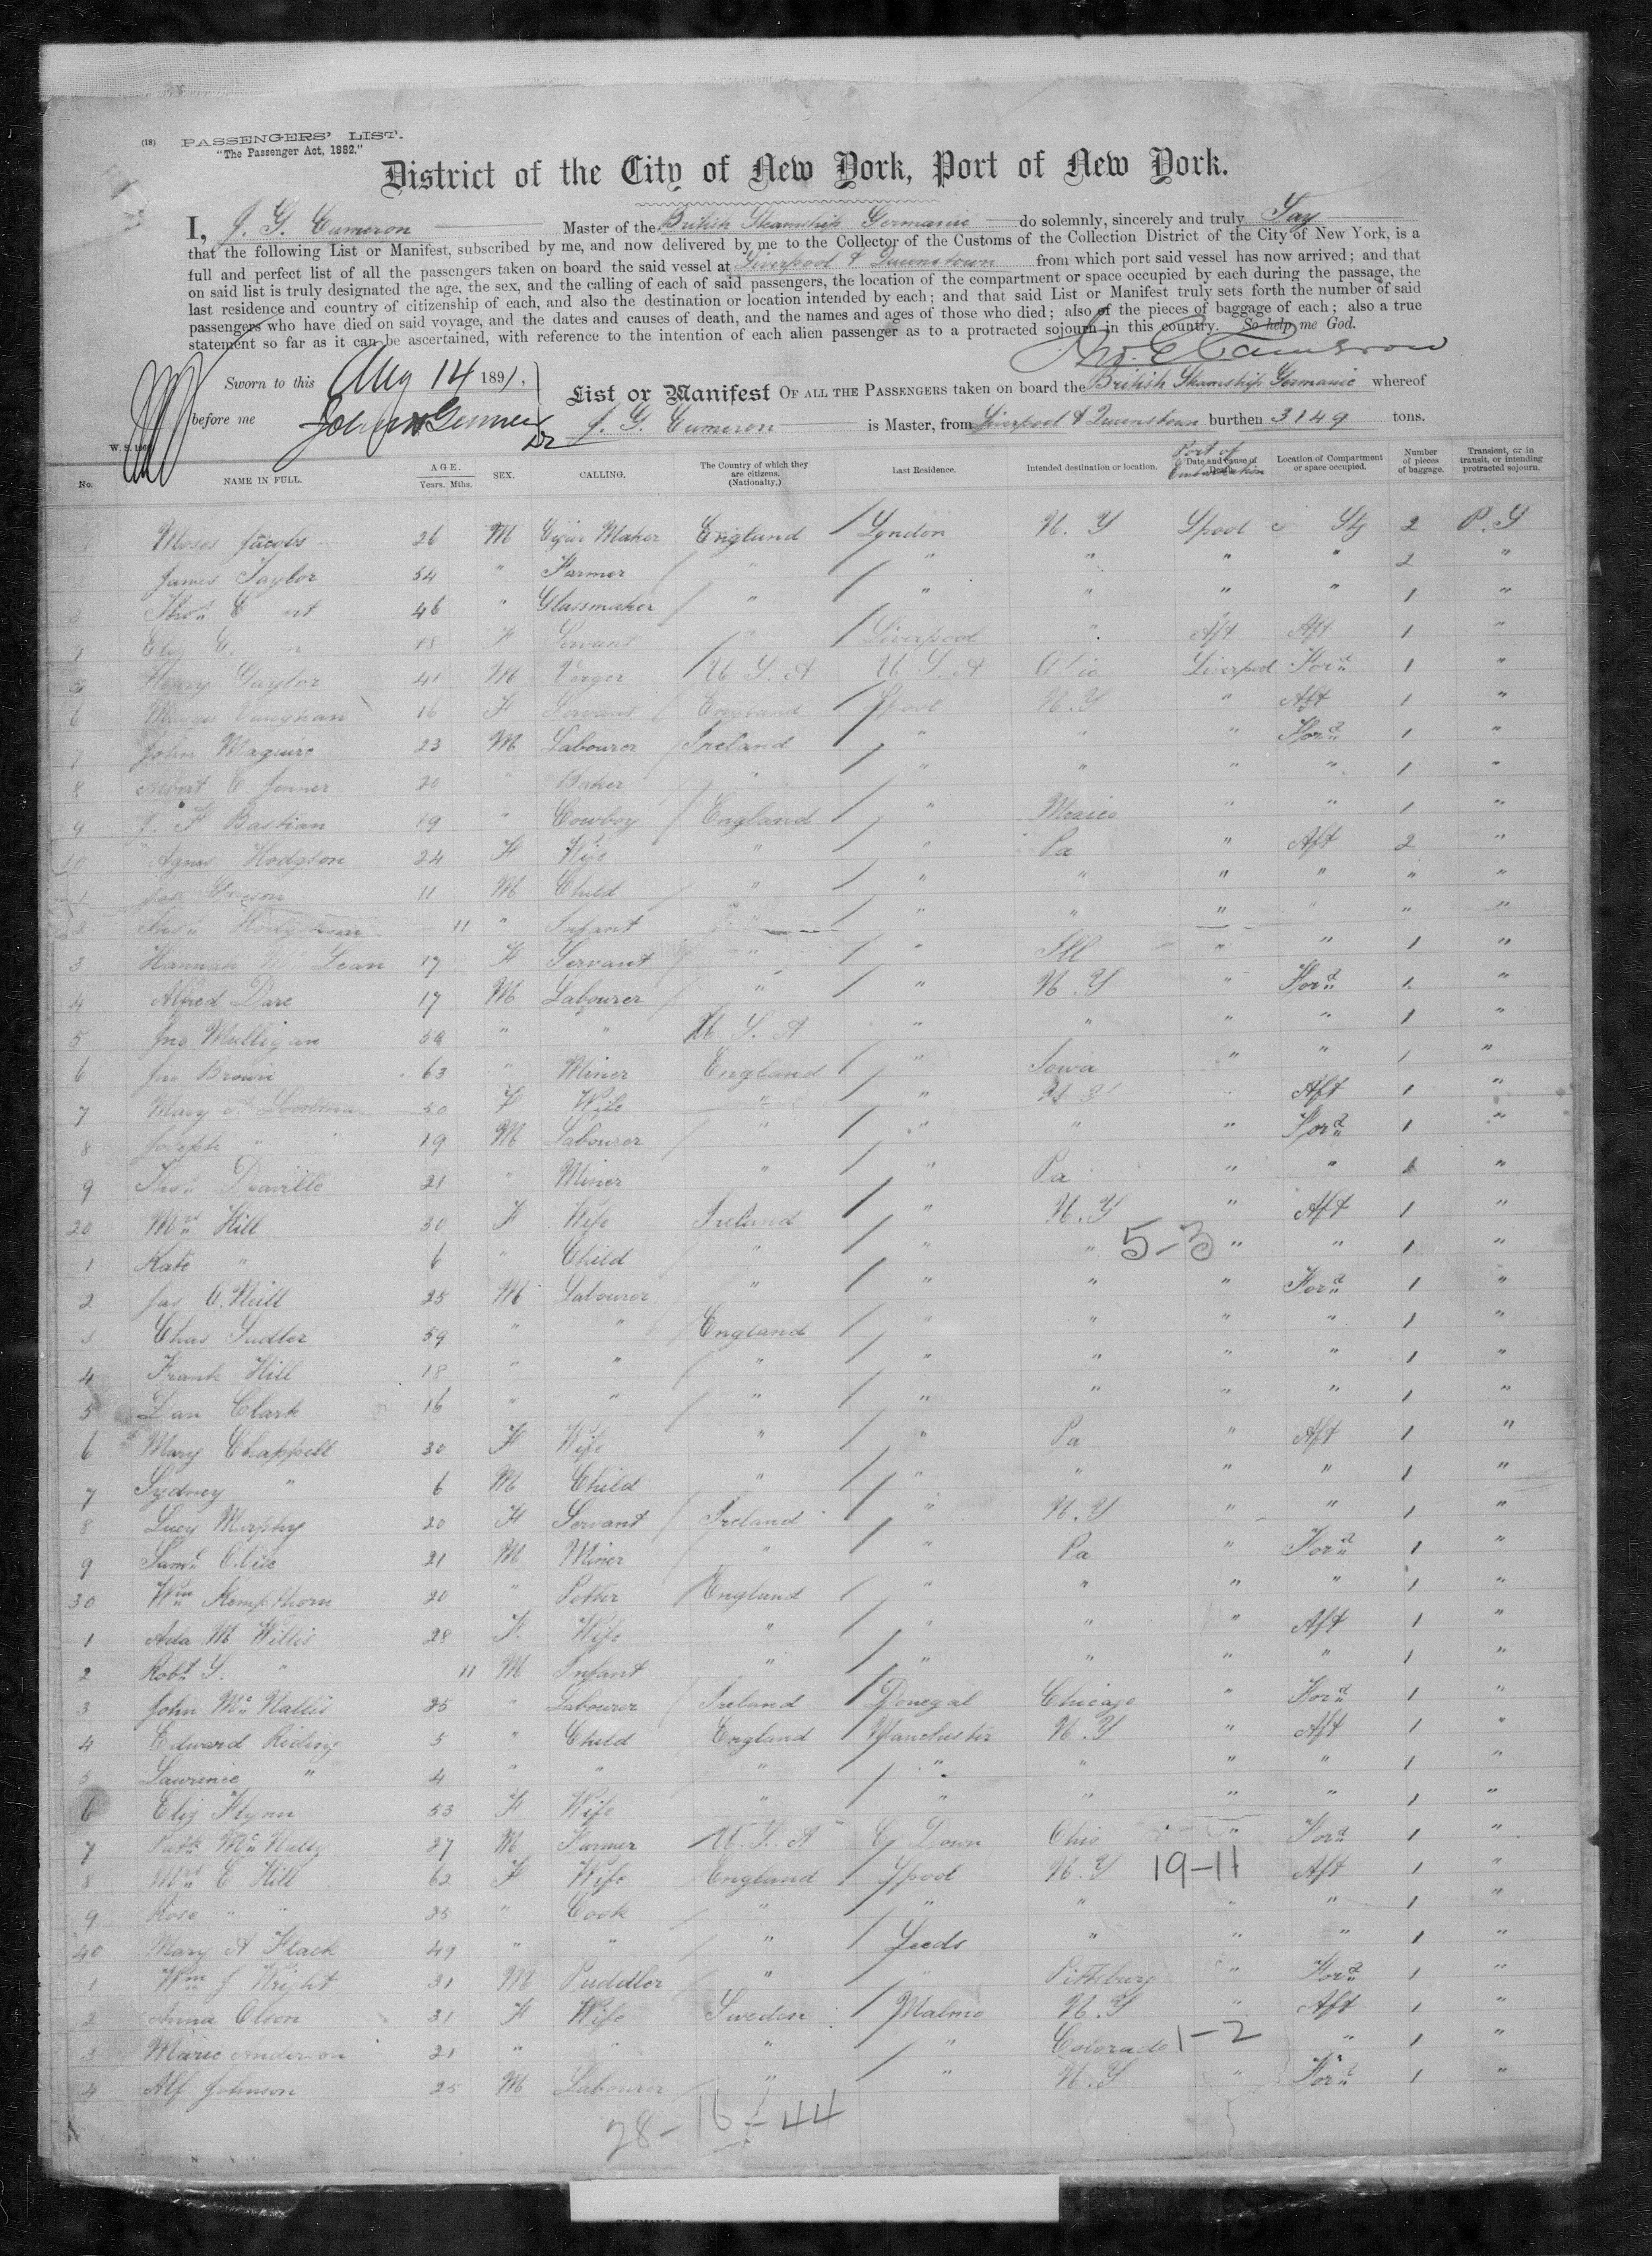 (18) PASSENGERS' LIST.
"The Passenger Act, 1882."
District of the City of New York, Port of New York.
I, J. G. Cameron Master of the British Steamship Germanic do solemnly, sincerely and truly Say
that the following List or Manifest, subscribed by me, and now delivered by me to the Collector of the Customs of the Collection District of the City of New York, is a
full and perfect list of all the passengers taken on board the said vessel at Liverpool & Queenstown from which port said vessel has now arrived; and that
on said list is truly designated the age, the sex, and the calling of each of said passengers, the location of the compartment or space occupied by each during the passage, the
last residence and country of citizenship of each, and also the destination or location intended by each; and that said List or Manifest truly sets forth the number of said
passengers who have died on said voyage, and the dates and causes of death, and the names and ages of those who died; also of the pieces of baggage of each; also a true
statement so far as it can be ascertained, with reference to the intention of each alien passenger as to a protracted sojourn in this country. So help me God.
Cameron
Sworn to this Aug 14 1891,
before me
List or Manifest OF ALL THE PASSENGERS taken on board the British Steamship Germanic whereof
J. G. Cameron is Master, from Liverpool & Queenstown burthen 3149 tons.
No. NAME IN FULL. AGE. Years. Mths. SEX. CALLING. The Country of which they are citizens. (Nationality.) Last Residence. Intended destination or location. Port of Embarkation Date and Cause of Death. Location of Compartment or space occupied. Number of pieces of baggage. Transient, or in transit, or intending protracted sojourn.
1 Moses Jacobs 26 M Cigar Maker England London N. Y Lpool Stg 2 P. S
2 James Taylor 54 " Farmer " " " " " 2 "
3 Thos 46 " Glassmaker " " " " " 1 "
4 Eliz 18 F Servant " Liverpool " Aft Aft 1 "
5 Henry Gaylor 41 M Verger U S. A U S. A Ohio Liverpool Ford 1 "
6 Maggie Vaughan 16 F Servant England Lpool N. Y " Aft 1 "
7 John Maguire 23 M Labourer Ireland " " " Ford 1 "
8 Albert E Jenner 20 " Baker " " " " " 1 "
9 J. F Bastian 19 " Cowboy England " Mexico " " 1 "
10 Agnes Hodgson 24 F Wife " " Pa " Aft 2 "
1 11 M Child " " " " " " "
2 Thos Hodgson 11 " Infant " " " " " " "
3 Hannah Mc Lean 17 F Servant " " Ill " " 1 "
4 Alfred Dare 17 M Labourer " " N. Y " Ford 1 "
5 Jno Mulligan 59 " " U S. A " " " " 1 "
6 Jno Brown 63 " Miner England " Iowa " " 1 "
7 Mary A 50 F Wife " " N Y Aft 1 "
8 Joseph " " 19 M Labourer " " " " Ford 1 "
9 Thos Deaville 21 " Miner " " Pa " " 1 "
20 Mrs Hill 30 F Wife Ireland " N. Y " Aft 1 "
1 Kate " 6 " Child " " " 5-3 " " 1 "
2 Jas O'Neill 25 M Labourer " " " " Ford 1 "
3 Chas Sadler 59 " " England " " " " 1 "
4 Frank Hill 18 " " " " " " " 1 "
5 Dan Clark 16 " " " " " " " 1 "
6 Mary Chappell 30 F Wife " " Pa " Aft 1 "
7 Sydney " 6 M Child " " " " " 1 "
8 Lucy Murphy 20 F Servant Ireland " N. Y " " 1 "
9 Saml 21 M Miner " " Pa " Ford 1 "
30 Wm Kempthorn 20 " Potter England " " " " 1 "
1 Ada M Willis 28 F. Wife " " " " Aft 1 "
2 Robt S. " 11 M Infant " " " " " 1 "
3 John Mc 25 " Labourer Ireland Donegal Chicago " Ford 1 "
4 Edward Riding 5 " Child England Manchester N. Y " Aft 1 "
5 Laurence " 4 " " " " " " " 1 "
6 Eliz Flynn 53 F Wife " " " " " 1 "
7 Patk McNally 27 M Farmer U. S. A Co Down Ohio " Ford 1 "
8 Mrs E Hill 62 F Wife England Lpool N. Y 19-11 Aft 1 "
9 Rose " " 25 " Cook " " " " " 1 "
40 Mary A Flack 49 " " " Leeds " " " 1 "
1 Wm J Wright 31 M Puddler " " Pittsburg " Ford 1 "
2 Anna Olson 31 F Wife Sweden Malmo N. Y " Aft 1 "
3 Marie Anderson 21 " " " " Colorado 1-2 " 1 "
4 Alf Johnson 25 M Labourer " " N. Y " Ford 1 "
28-16-44